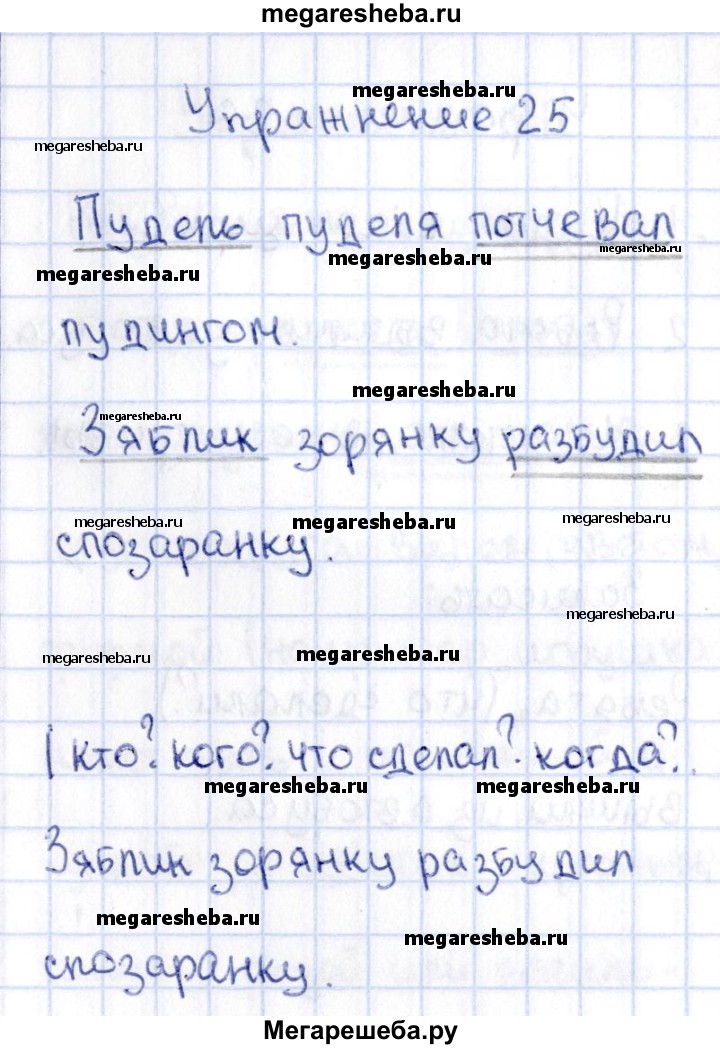 megaresheba.ru
megaresheba.ru
Упражнение 25
megaresheba.ru
Пудель пуделя потчевал
megaresheba.ru
megaresheba.ru
megaresheba.ru
пудингом.
megaresheba.ru
megaresheba.ru
Зяблик зорянку разбудил
megaresheba.ru
megaresheba.ru
megaresheba.ru
спозаранку.
megaresheba.ru
megaresheba.ru
megaresheba.ru
кто? кого? что сделал? когда?
megaresheba.ru
megaresheba.ru
Зяблик зорянку разбудил
megaresheba.ru
megaresheba.ru
спозаранку.
Мегарешеба.ру